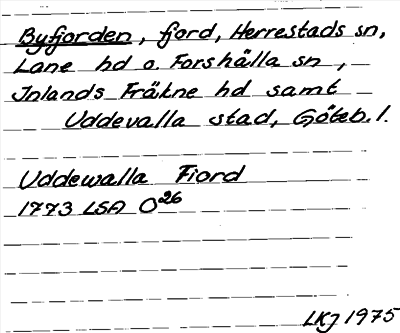 Byfjorden, fjord, Herrestads sn,
Lane hd o. Forshälla sn,
Inlands Fräkne hd samt
Uddevalla stad, Göteb. l.
Uddewalla Fiord
1773 LSA O26
LKJ 1975